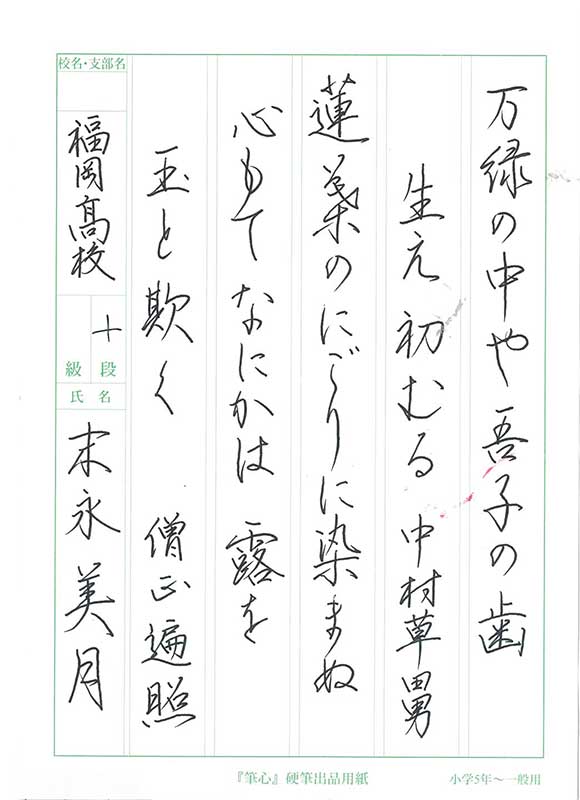 万緑の中や吾子の歯
生え初むる 中村草田男
蓮葉のにごりに染まぬ
心もてなにかは露を
玉と欺く 僧正遍照
校名・支部名
福岡高校
十
級 段
氏名
末永美月
『筆心』硬筆出品用紙
小学5年〜一般用